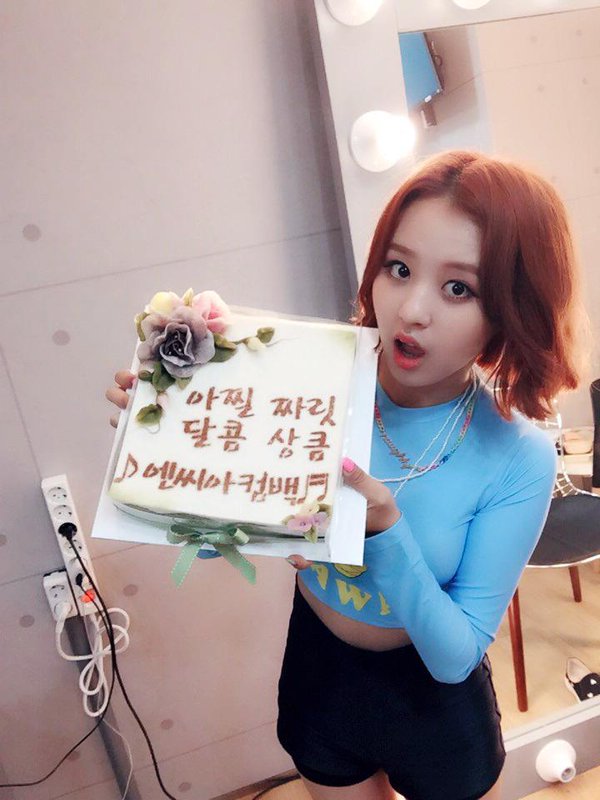 아찔 짜릿
달콤 상큼
♪엔씨아컴백♬
AWE